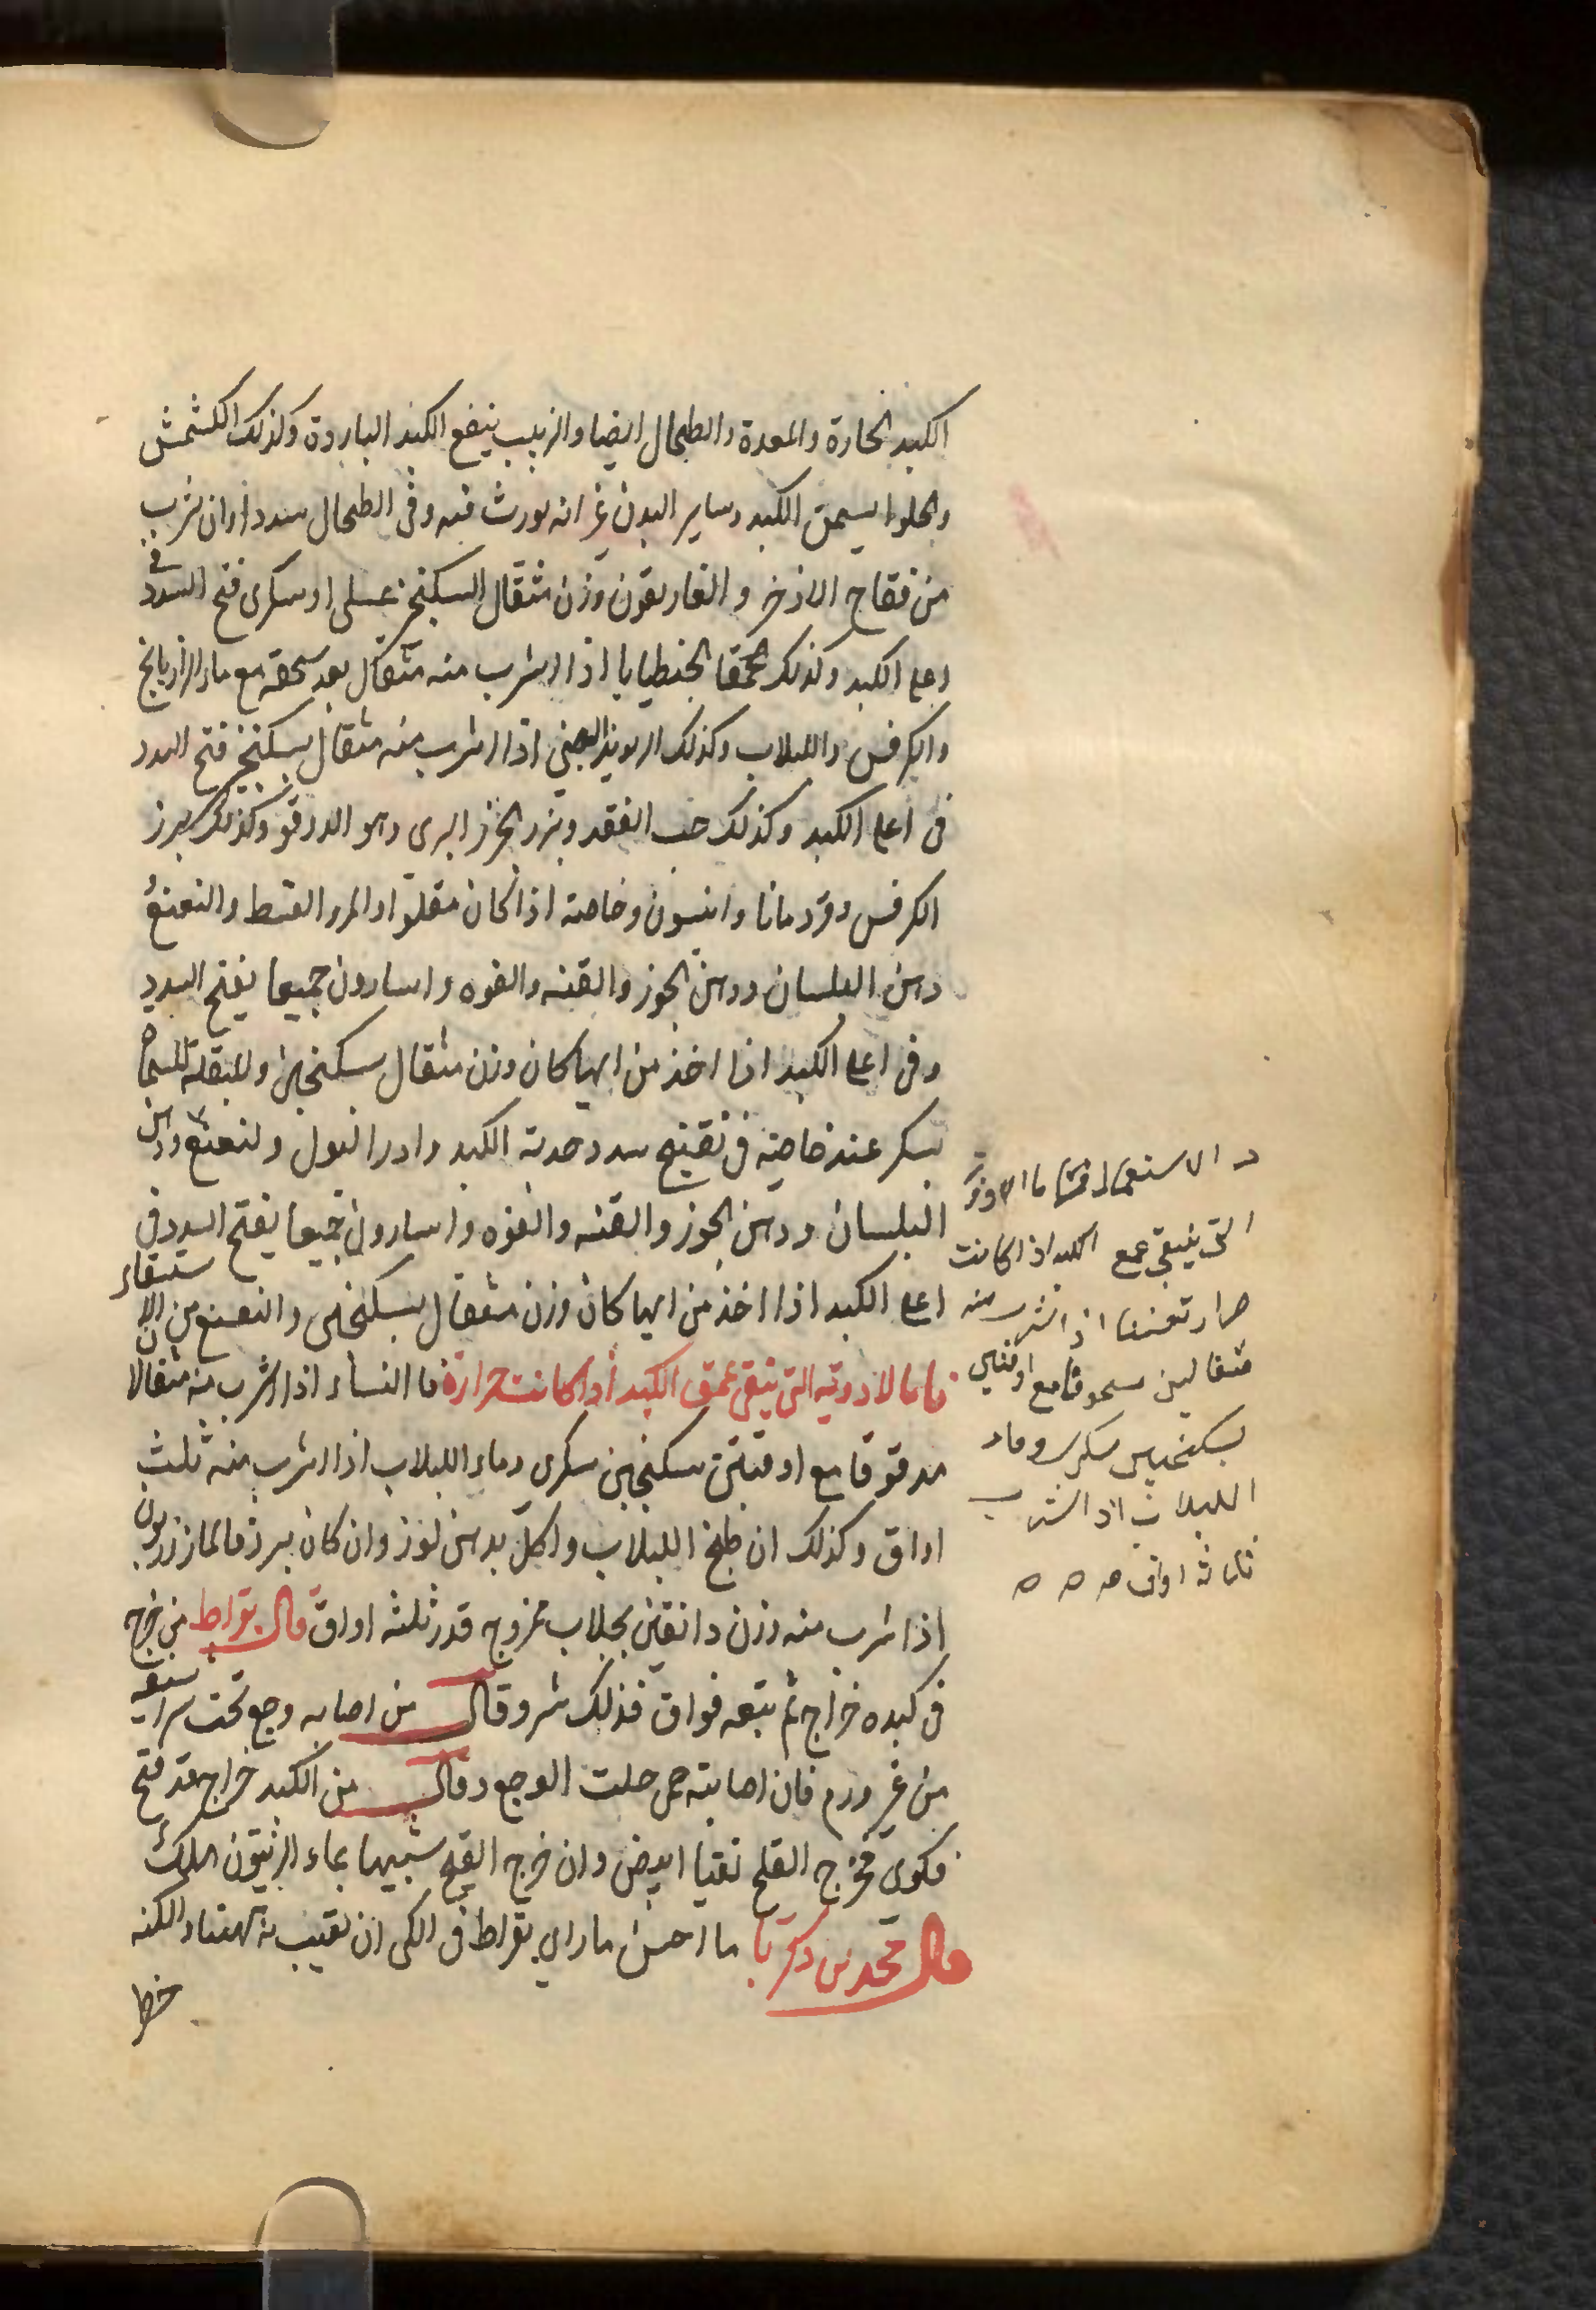 الكبد الحارة والمعدة والطحال ايضا والزبيب ينفع الكبد الباردة وكذلك الكشمش
والحلوا يسمن الكبد وساير البدن غير انه يورث فيه وفى الطحال سددا وان شرب
من فقاح الاذخر و الغاريقون وزن مثقال السكنجبن عسلى او سكرى فتح السدد فى
اعلى الكبد وكذلك الجنطيايا اذا اشرب منه مثقال بعد سحقه مع ماء الرازيانج
والكرفس واللبلاب وكذلك الريوند الصينى اذا اشرب منه مثقال بسكنجبن فتح السدد
فى اعلى الكبد وكذلك حب الفقد وبزر الجزر البرى وهو الدوقو وكذلك بزر
الكرفس وقردمانا وانيسون وخاصة اذا كان مقلوا والمر والقسط والنعنع
دهن البلسان ودهن الجوز والقنه والفوه واسارون جميعا يفتح السدد
وفى اعلى الكبد اذا اخذ من ايها كان وزن مثقال بسكنجبين وللبقلة
بسكر عند خاصية فى تفتيح سدد حدبة الكبد وادرار البول ولنعنع ودهن
البلسان ودهن الجوز والقنه والفوه واسارون جميعا يفتح السدد فى
اعلى الكبد اذا اخذ من ايها كان وزن مثقال بسكنجبين والنعنع من الاستسقاء
فاما الادوية التى ينقى عمق الكبد اذا كانت حرارة فا النساء اذا اشرب منه مثقالا
مدقوقا مع اوقيتين سكنجبين سكرى وماء اللبلاب اذا اشرب منه ثلث
اواق وكذلك ان طبخ اللبلاب واكل بدهن لوز وان كان برد فالمازريون
اذا شرب منه وزن دانقين بجلاب ممزوج قدر ثلثه اواق قال بقراط من خرج
فى كبده خراج ثم يتبعه فواق فذلك شر وقال من اصابه وجع تحت شراسيفه
من غير ورم فان اصابته حمى حلت الوجع وقال من الكبد خراج قد فتح
فكوى فخرج القلح نقيا ابيض وان خرج القيح شبيها بماء الزيتون هلك
قال محمد بن زكريا ما احسن ما راى بقراط فى الكى ان نقيب به ههنا ولكنه
خطا
د الاستعمال فاما الادوية
التى ينقى عمق الكبد اذا كانت
اذا شرب منه
مثقالين مسحوقا مع اوقيتين
بسكنجبين سكرى وماء
اللبلاب اذا اشرب
ثلاثة اواق ه ه ه